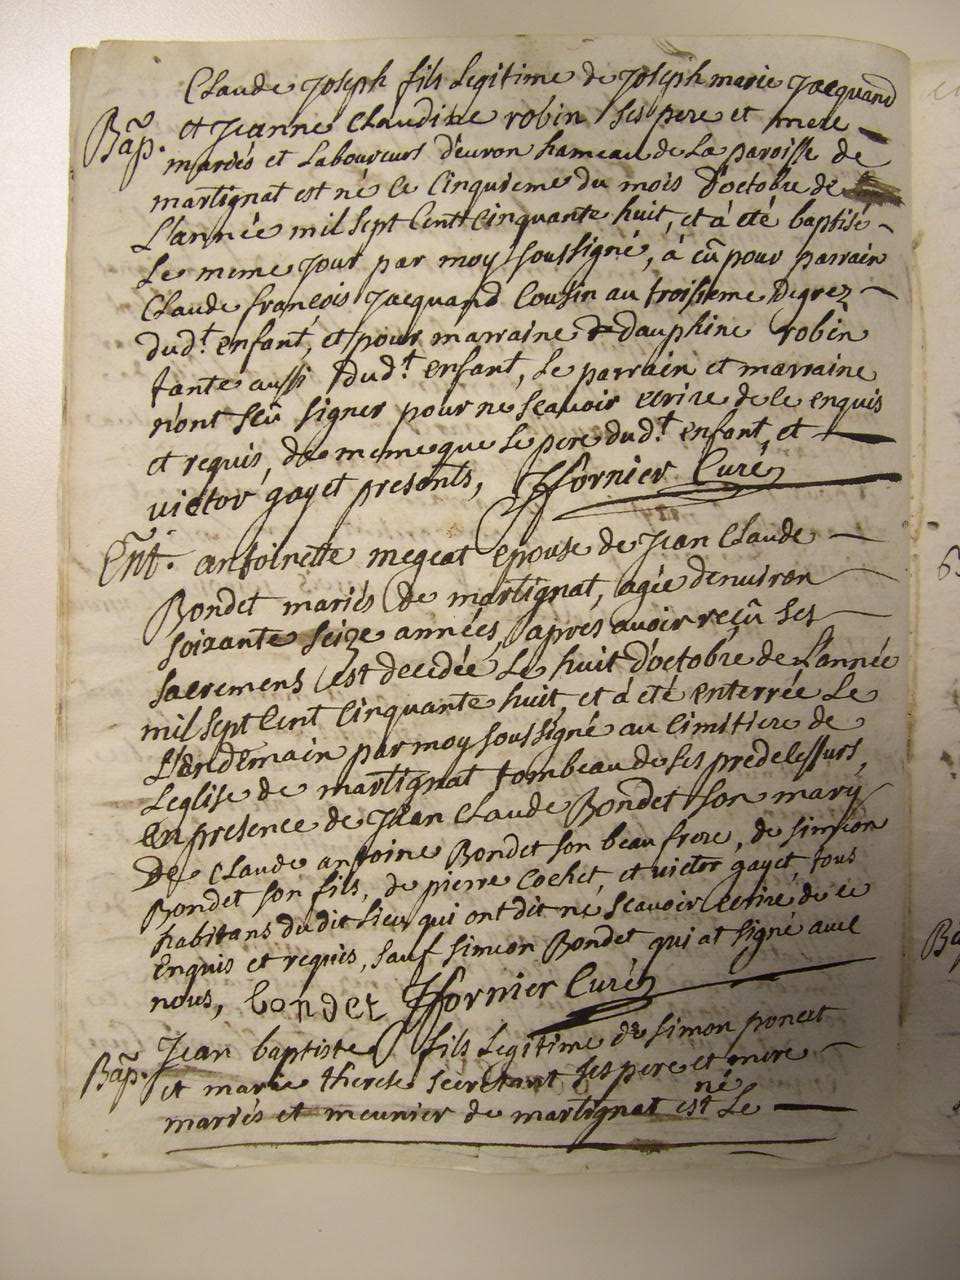 Claude Joseph fils Legitime de Joseph marie Jacquand
Bap. et Jeanne Claudine robin ses pere et mere
mariés et Laboureurs d'euron hameau de La paroisse de
martignat est né le Cinquieme du mois d'octobre de
L'année mil sept Cent Cinquante huit, et à été baptisé
Le meme Jour par moy soussigné, à eû pour parrain
Claude françois Jacquand Cousin au troisieme Degrez
dud.t enfant, et pour marraine dauphine robin
tante aussi dud.t enfant, Le parrain et marraine
n'ont sçû signer pour ne scavoir ecrire de ce enquis
et requis, de meme que Le pere dud.t enfant, et
victor gayet presents, Ffornier Curé
Ent. antoinette megeat epouse de Jean Claude
Bondet mariés de martignat, agée denuiron
soixante seize années, apres avoir reçû ses
sacremens est decedée Le huit d'octobre de L'année
mil sept Cent Cinquante huit, et à été enterrée Le
L'endemain par moy soussigné au Cimitiere de
Leglise de martignat tombeau de ses predecessurs,
en presence de Jean Claude Bondet son mary
De Claude antoine Bondet son beau frere, de simeon
Bondet son fils, de pierre Cochet, et victor gayet, tous
habitans dudit Lieu qui ont dit ne scavoir ecrire de ce
enquis et requis, sauf simeon Bondet qui at signé avec
nous, bondet Ffornier Curé
Bap. Jean baptiste fils Legitime de simon poncet
et marie therese secretant ses pere et mere
mariés et meunier de martignat est né Le